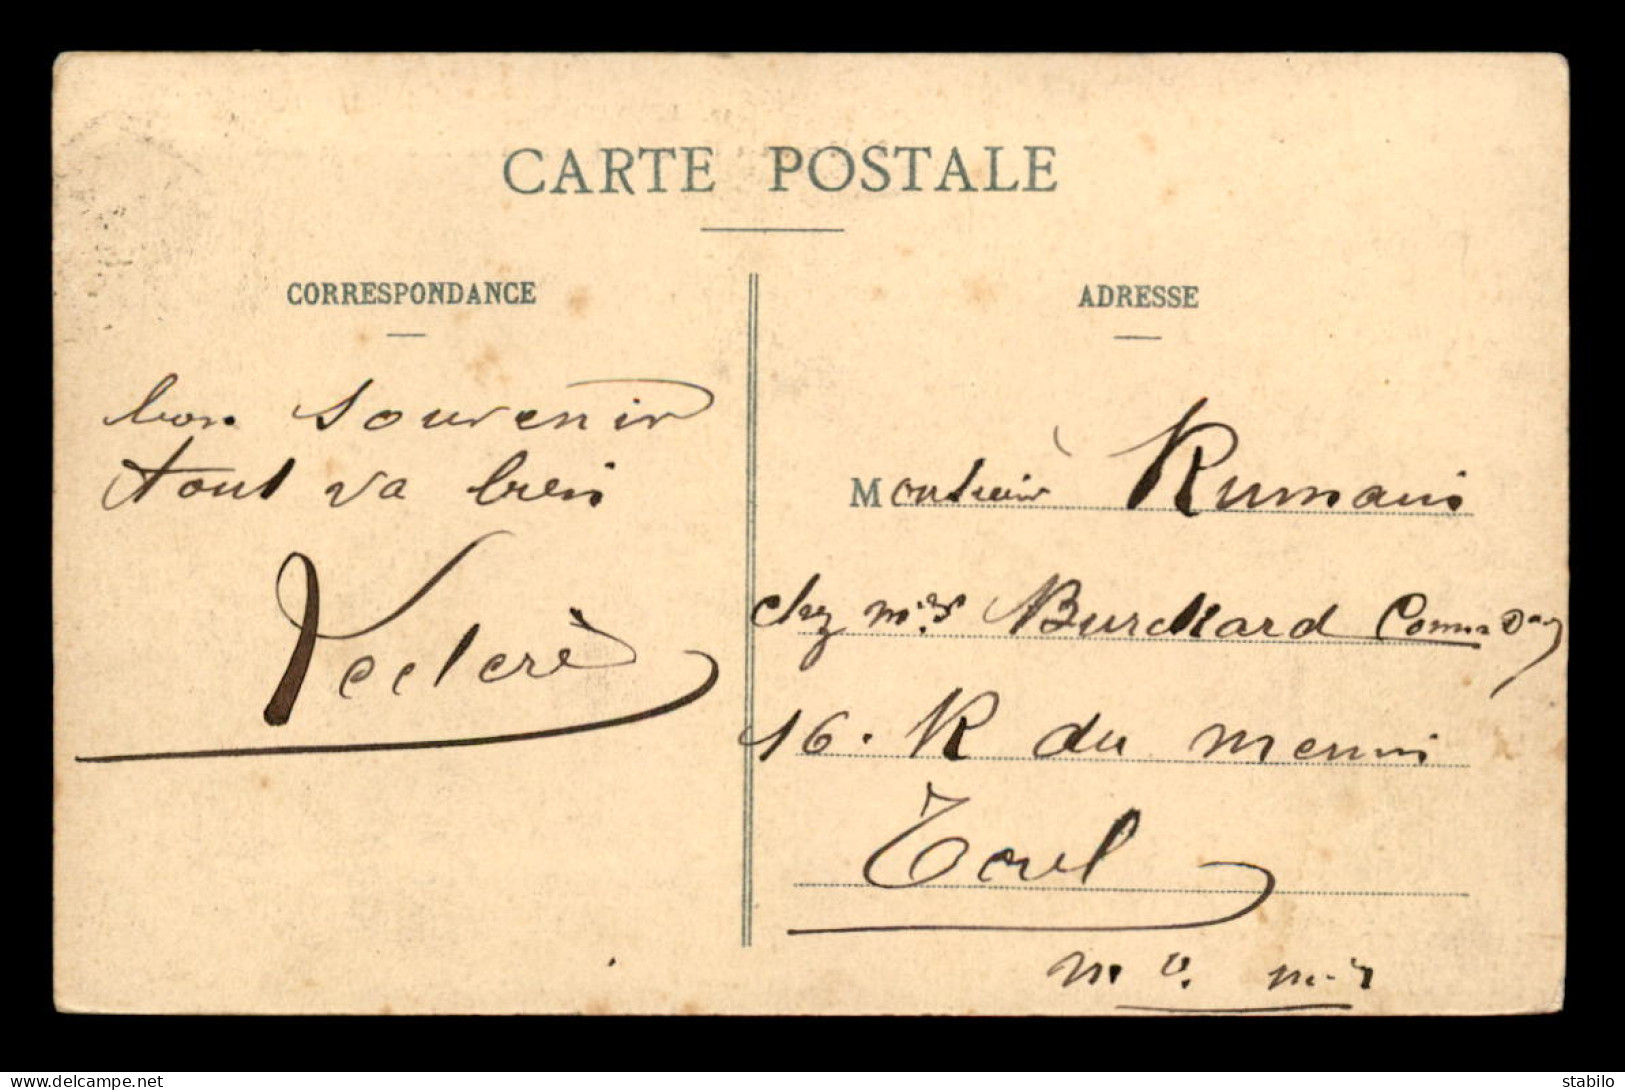 CARTE POSTALE
CORRESPONDANCE
bon souvenir
tout va bien
Leclerc
ADRESSE
Monsieur Rumain
chez Burckard
16. R du menui
Toul
www.delcampe.net
stabilo